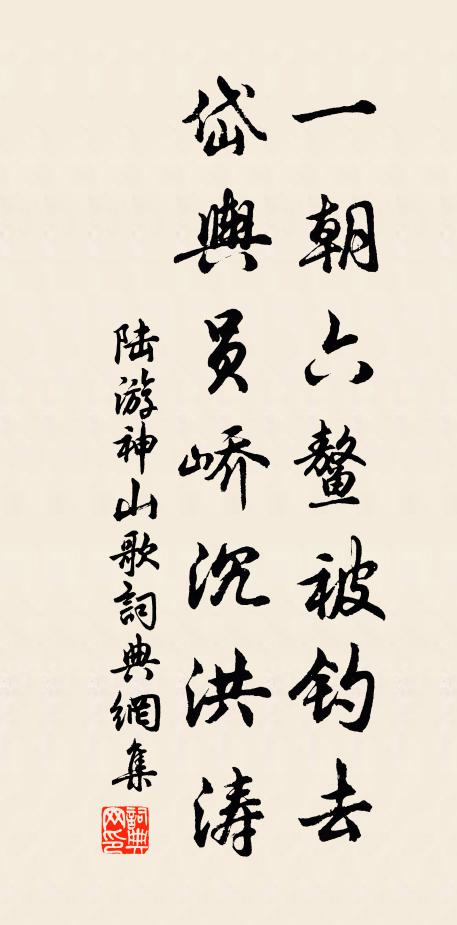 一朝六鳌被钓去
岱舆员峤沉洪涛
陆游神山歌詞典網集
詞典网印